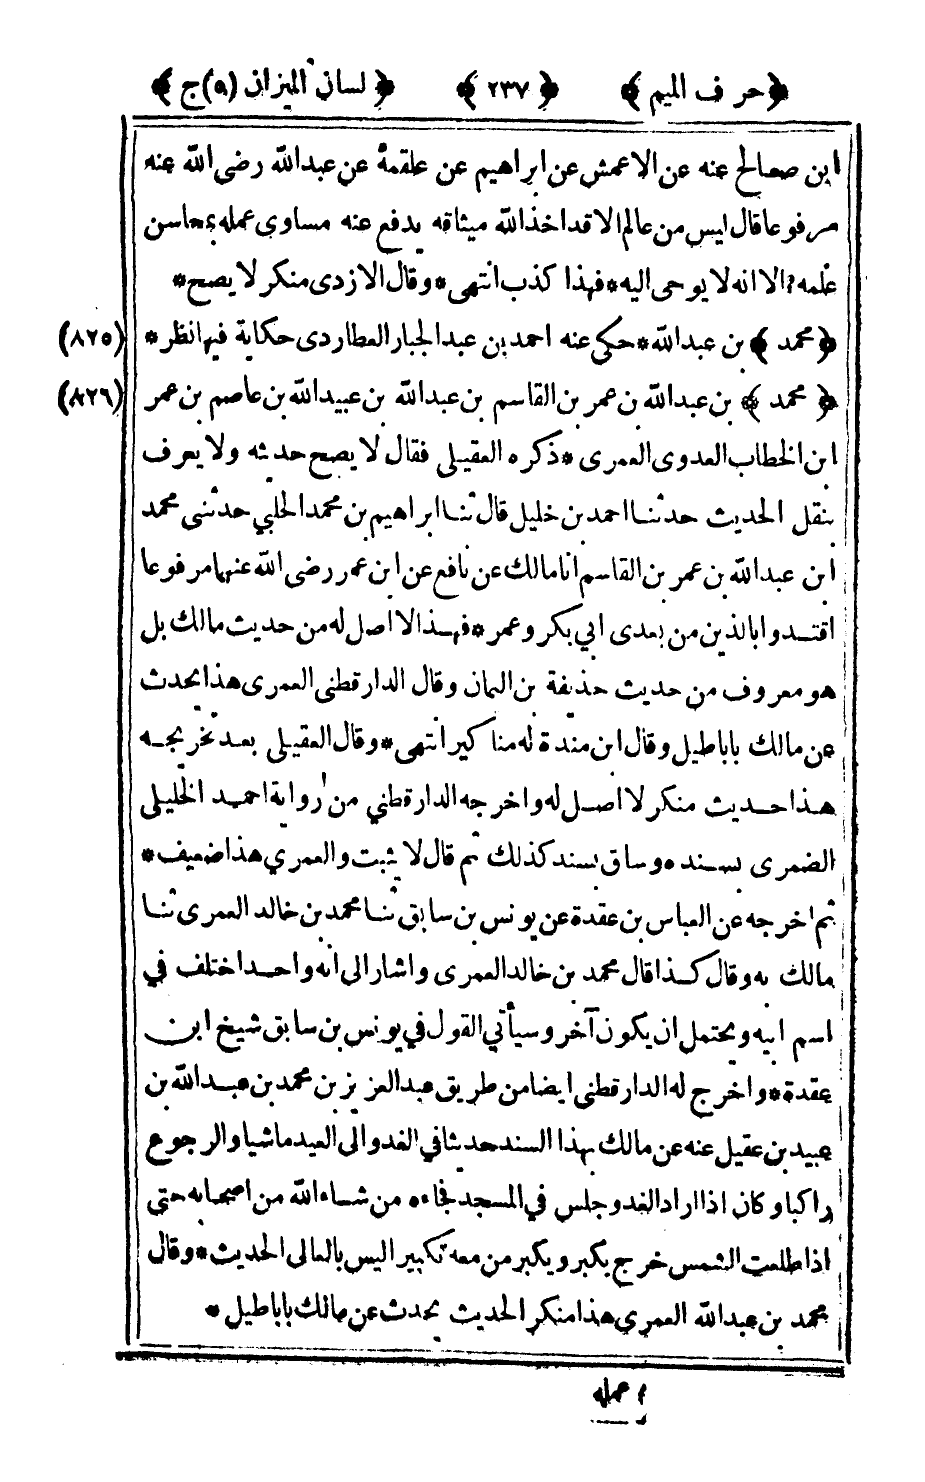 ﴿حرف الميم﴾ ﴿٢٣٧﴾ ﴿لسان الميزان (٥) ج﴾
ابن صالح عنه عن الاعمش عن ابراهيم عن علقمة عن عبدالله رضى الله عنه
مرفوعا قال ليس من عالم الا قد اخذ الله ميثاقه يدفع عنه مساوى عمله بمحاسن
علمه ١ الا انه لا يوحى اليه * فهذا كذب انتهى * وقال الازدى منكر لا يصح *
﴿محمد﴾ بن عبدالله * حكى عنه احمد بن عبدالجبار العطاردى حكاية فيها نظر * (٨٢٥)
﴿محمد﴾ بن عبدالله بن عمر بن القاسم بن عبدالله بن عبيدالله بن عاصم بن عمر (٨٢٦)
ابن الخطاب العدوى العمرى * ذكره العقيلى فقال لا يصح حديثه ولا يعرف
بنقل الحديث حدثنا احمد بن خليل قال ثنا ابراهيم بن محمد الحلبي حدثنى محمد
ابن عبدالله بن عمر بن القاسم انا مالك عن نافع عن ابن عمر رضى الله عنهما مرفوعا
اقتدوا بالذين من بعدى ابي بكر وعمر * فهذا لا اصل له من حديث مالك بل
هو معروف من حديث حذيفة بن اليمان وقال الدارقطنى العمرى هذا يحدث
عن مالك باباطيل وقال ابن مندة له مناكير انتهى * وقال العقيلى بعد تخريجه
هذا حديث منكر لا اصل له واخرجه الدارقطني من رواية احمد الخليلى
الضمرى بسنده وساق بسند كذلك ثم قال لا يثبت والعمري هذا ضعيف *
ثم اخرجه عن العباس بن عقدة عن يونس بن سابق ثنا محمد بن خالد العمرى ثنا
مالك به وقال كذا قال محمد بن خالد العمرى واشار الى انه واحد اختلف في
اسم ابيه ويحتمل ان يكون آخر وسيأتي القول في يونس بن سابق شيخ ابن
عقدة * واخرج له الدارقطنى ايضا من طريق عبدالعزيز بن محمد بن عبدالله بن
عبيد بن عقيل عنه عن مالك بهذا السند حديثا في الغدو الى العيد ماشيا والرجوع
راكبا وكان اذا اراد الغدو جلس في المسجد فجاءه من شاء الله من اصحابه حتى
اذا طلعت الشمس خرج يكبر ويكبر من معه تكبير اليس بالعالى الحديث * وقال
محمد بن عبدالله العمري هذا منكر الحديث يحدث عن مالك باباطيل *
١ عمله